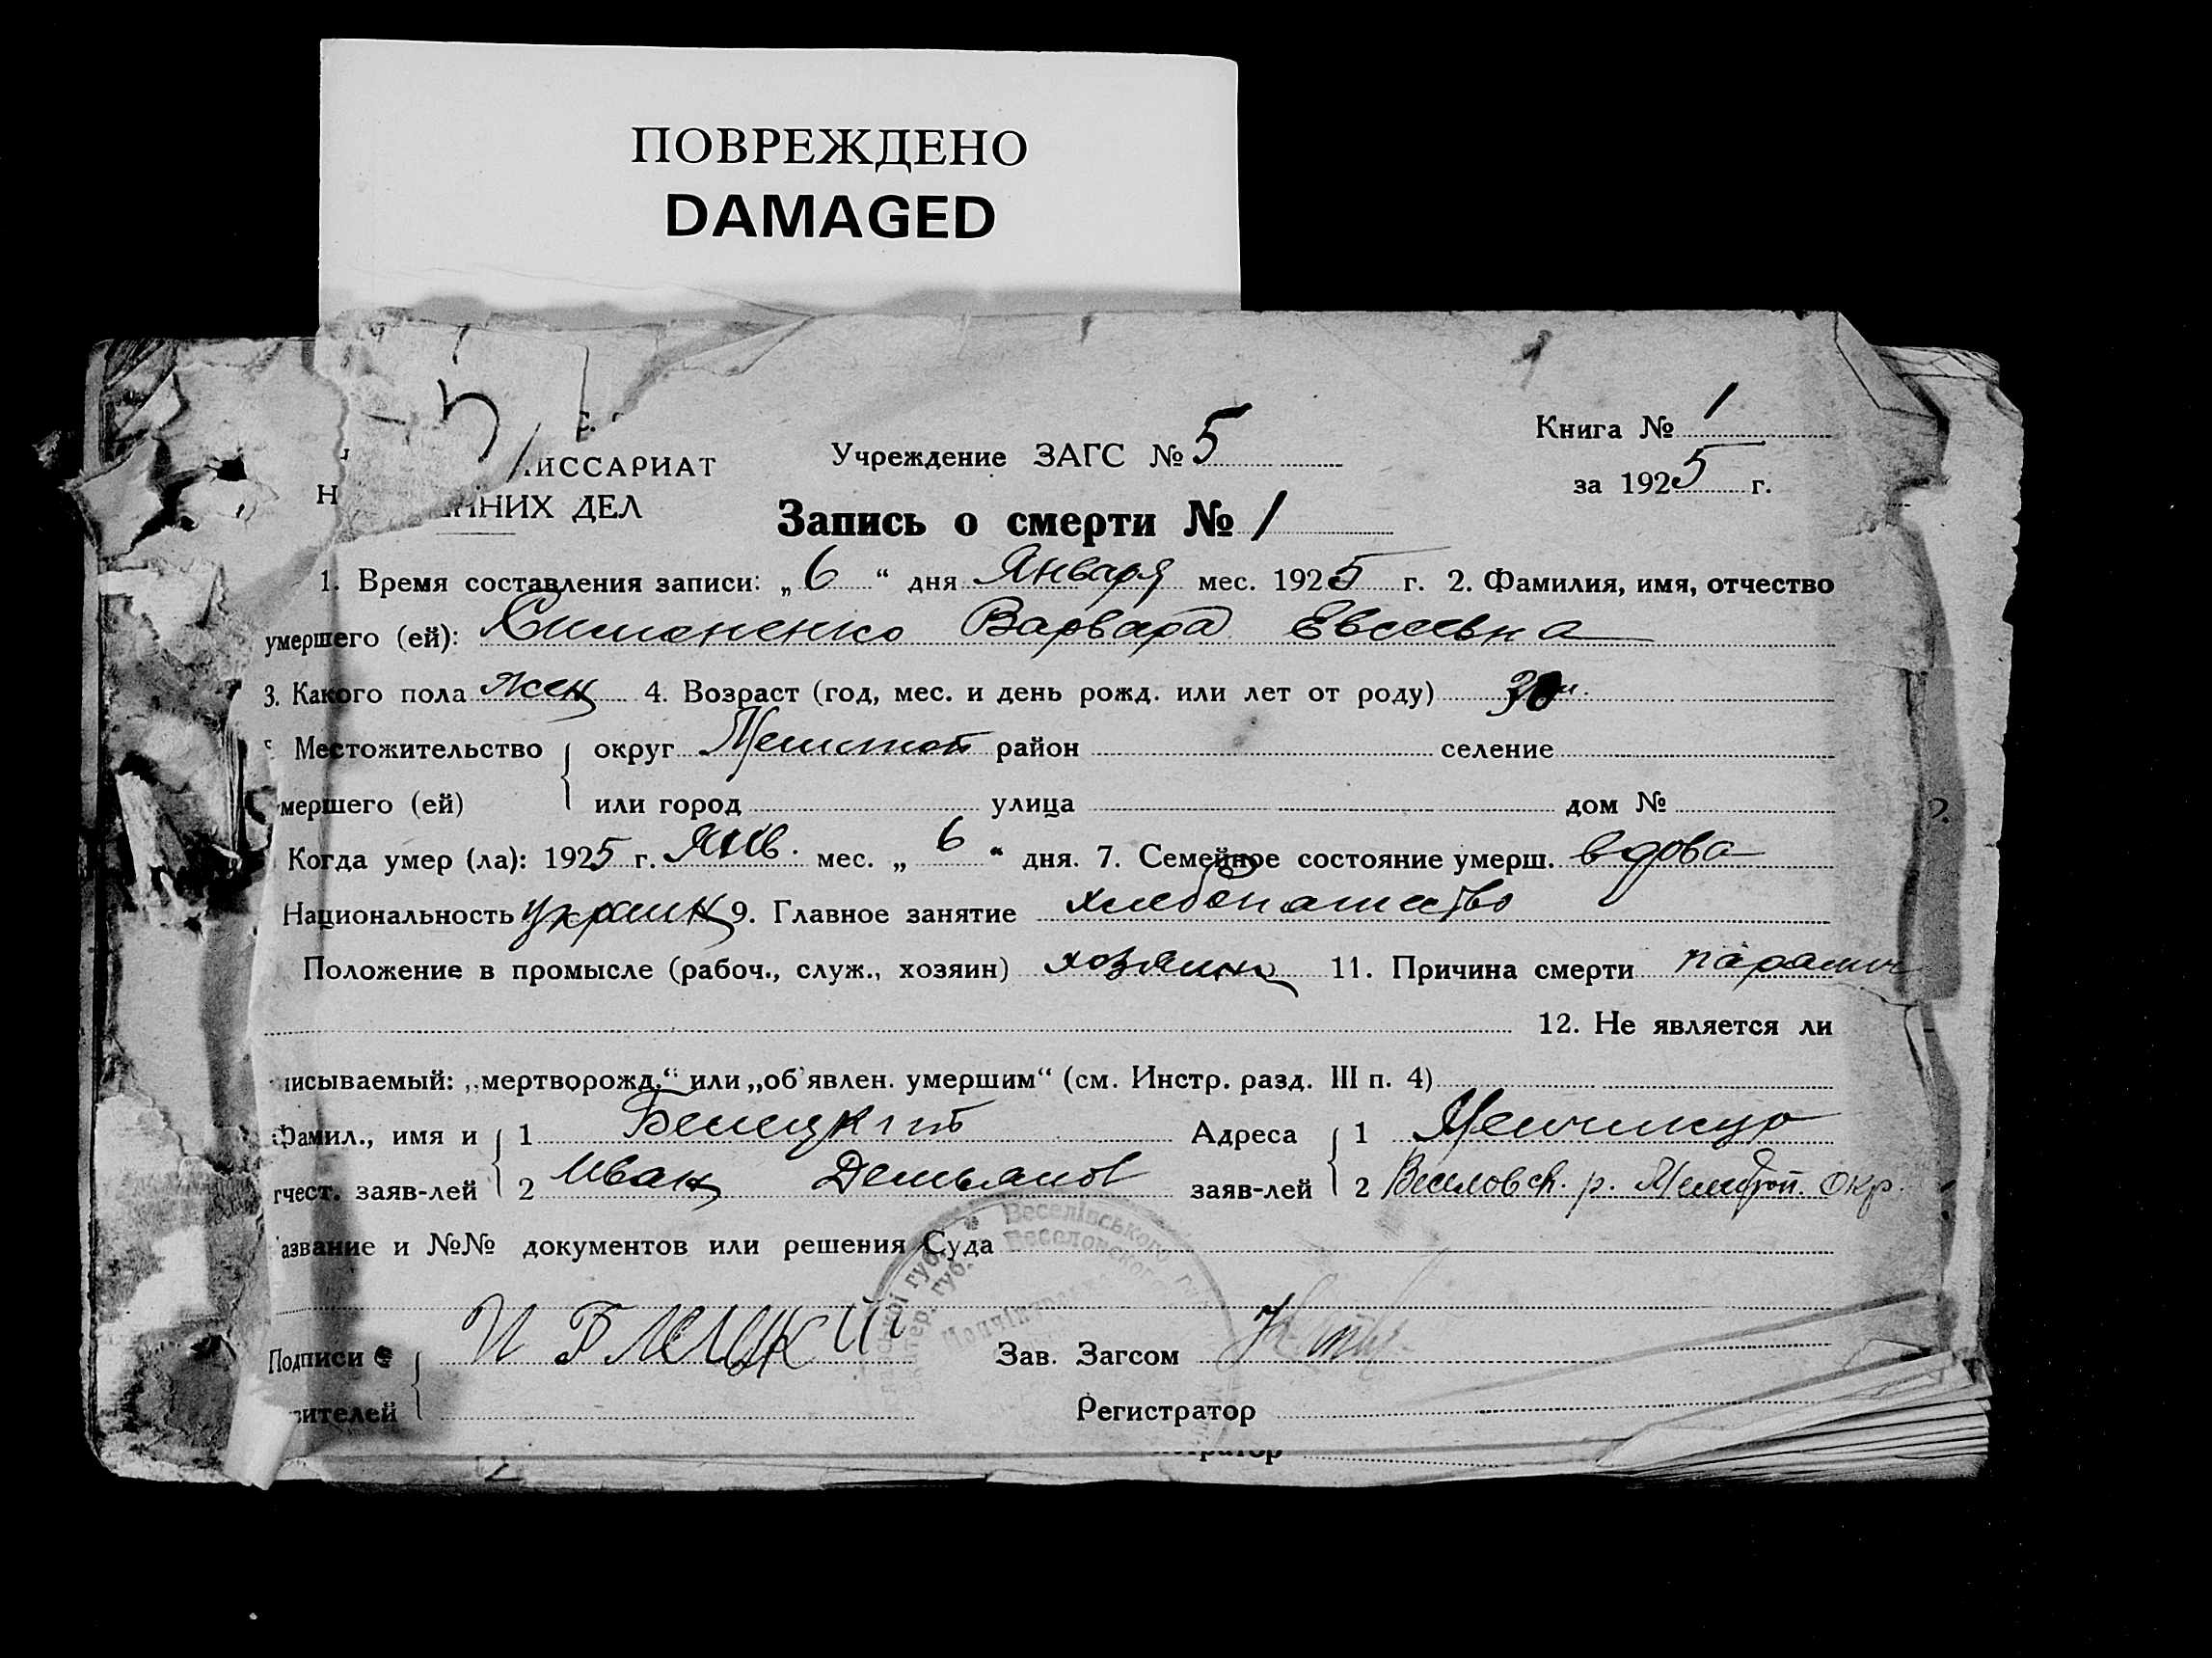 ПОВРЕЖДЕНО
DAMAGED
5
Книга № 1
ИССАРИАТ
Учреждение ЗАГС № 5
за 1925 г.
Н ННИХ ДЕЛ
Запись о смерти № 1
1. Время составления записи: „6“ дня Января мес. 1925 г. 2. Фамилия, имя, отчество
умершего (ей): Симоненко Варвара Евсеевна
3. Какого пола жен 4. Возраст (год, мес. и день рожд. или лет от роду)
Местожительство округ район селение
мершего (ей) или город улица дом №
Когда умер (ла): 1925 г. Янв. мес. „6“ дня. 7. Семейное состояние умерш. вдова
Национальность украин 9. Главное занятие хлебопашество
Положение в промысле (рабоч., служ., хозяин) хозяин 11. Причина смерти паралич
12. Не является ли
исываемый: „мертворожд.“ или „об'явлен. умершим“ (см. Инстр. разд. III п. 4)
Фамил., имя и 1 Белецкий Адреса 1
чест. заяв-лей 2 Иван Демьянов заяв-лей 2 Веселовск. р. Мелитоп. окр.
азвание и №№ документов или решения Суда
Веселівського
Веселовского
губ.
губ.
Подписи И Белецкий Зав. Загсом
вителей Регистратор